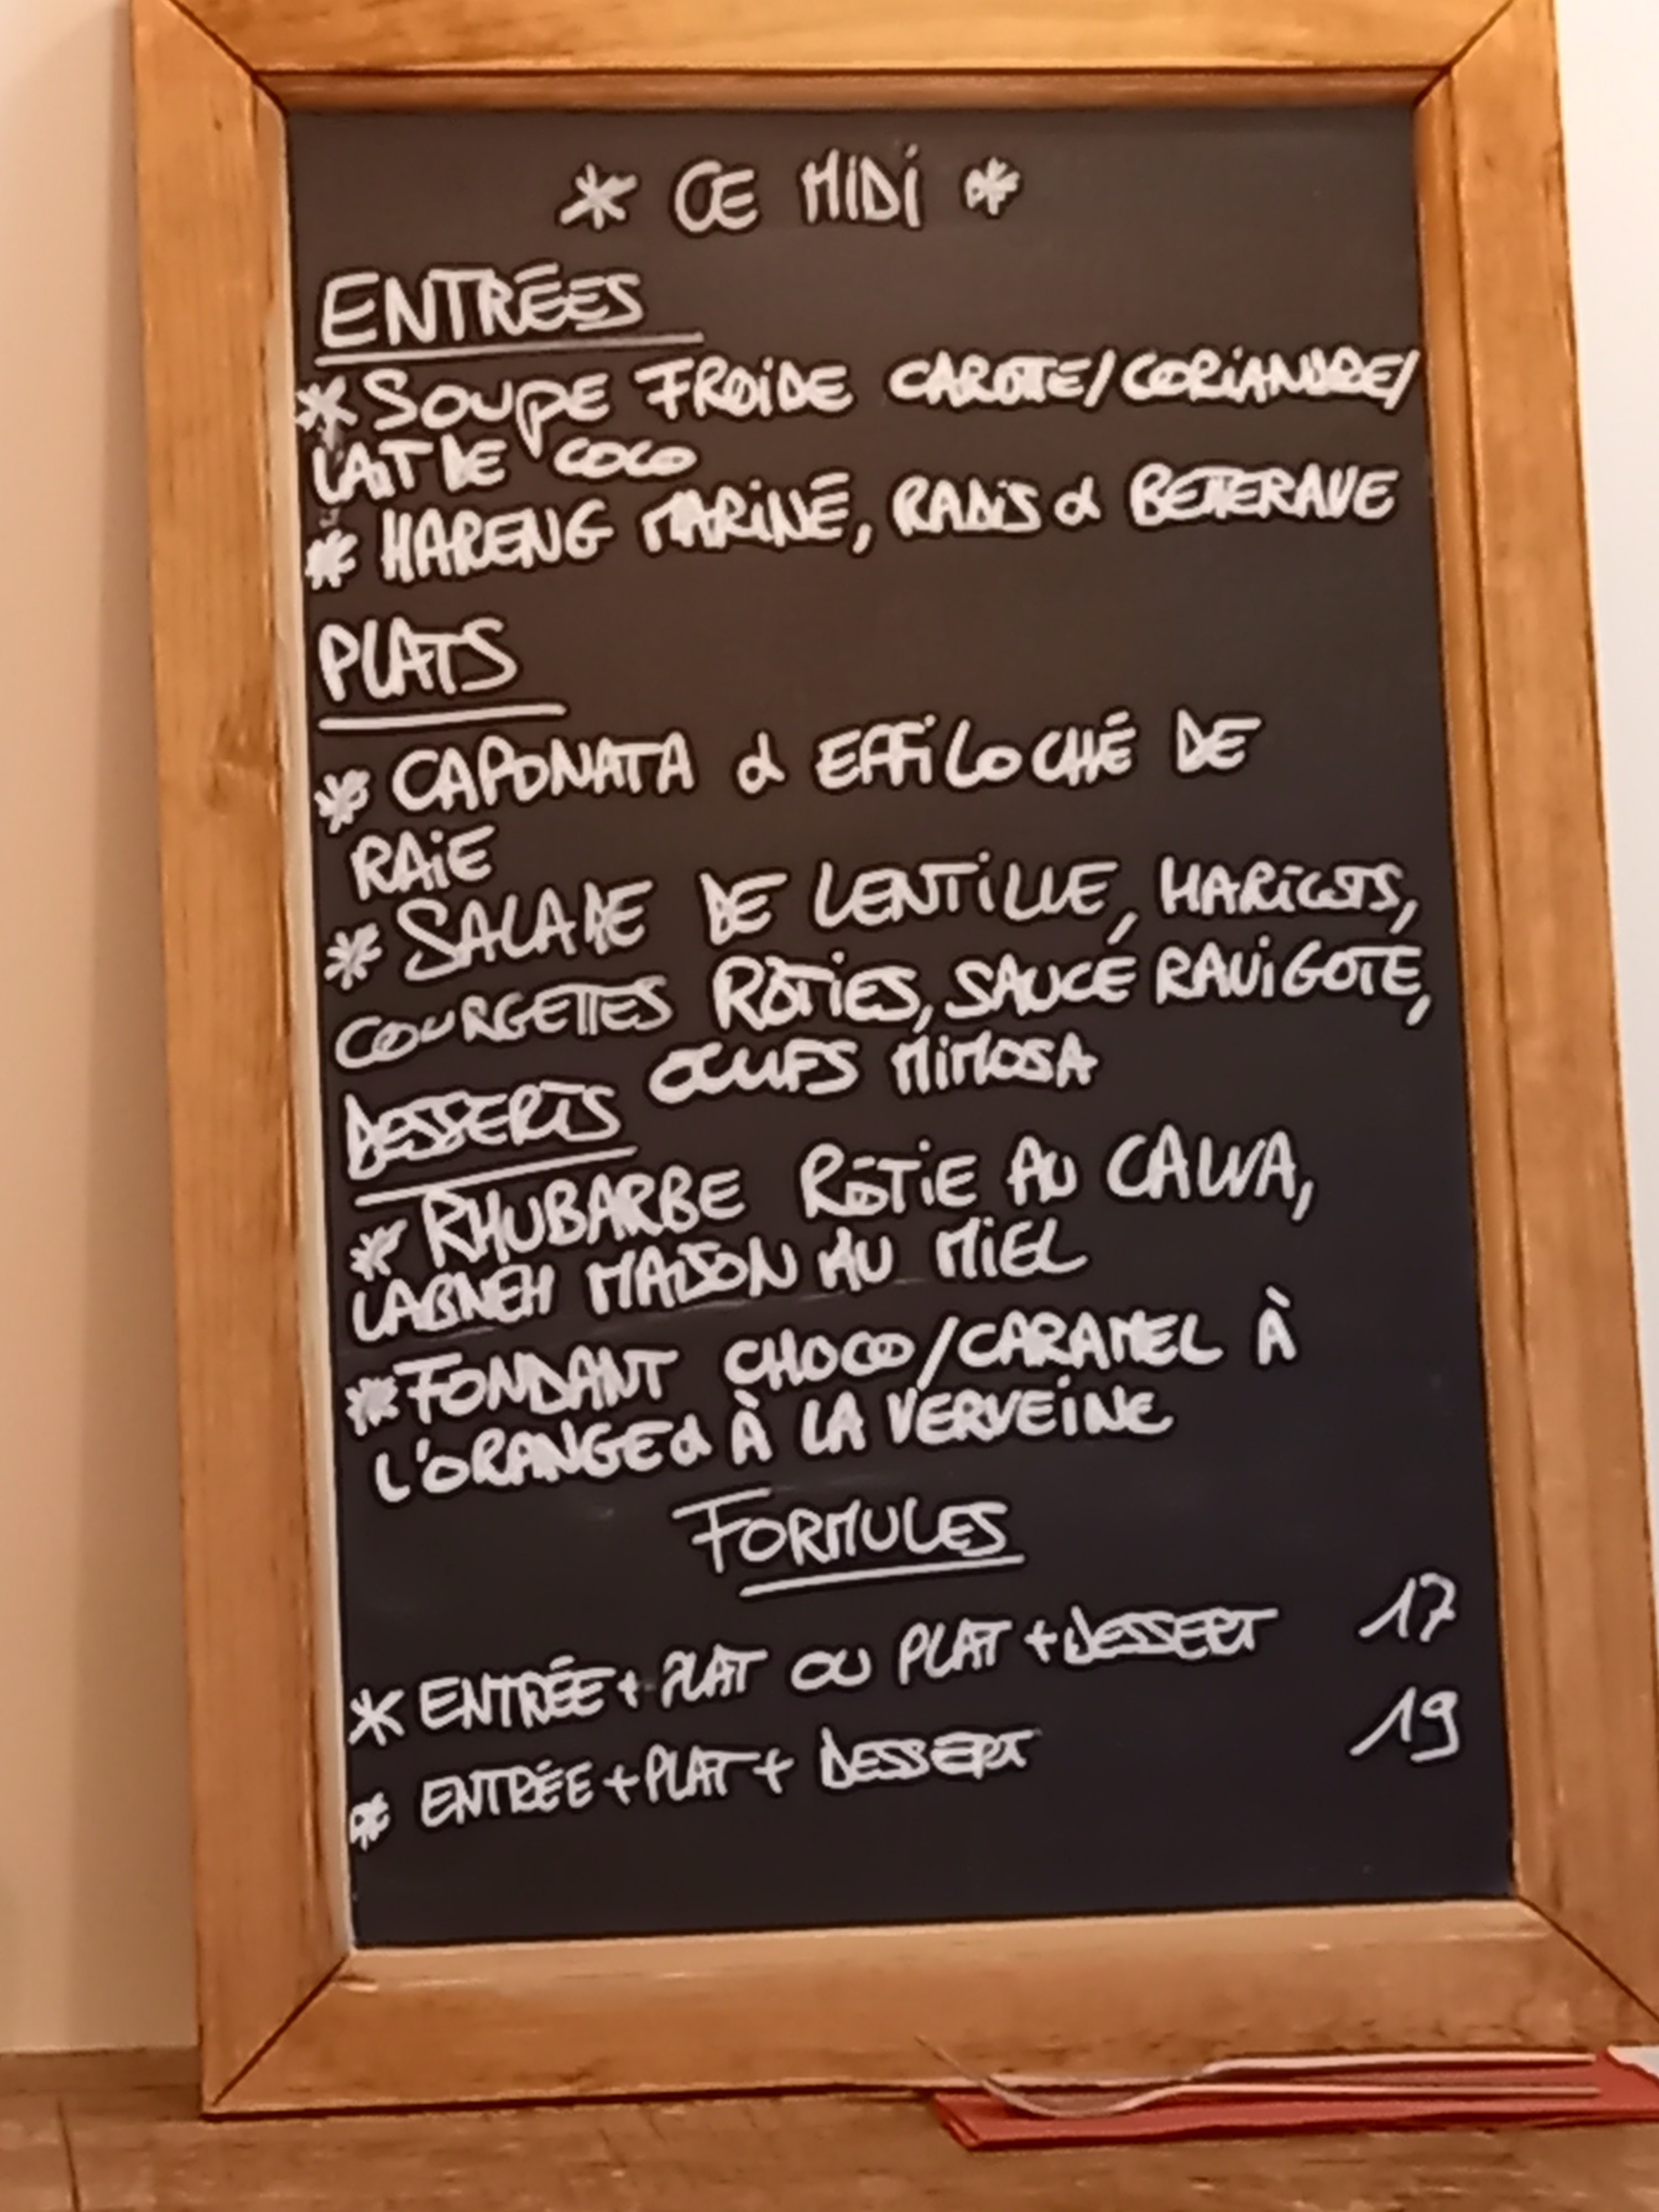 * CE MIDI *
ENTRÉES
* SOUPE FROIDE CAROTTE/CORIANDRE/
LAIT DE COCO
* HARENG MARINÉ, RADIS & BETTERAVE
PLATS
* CAPONATA & EFFILOCHÉ DE
RAIE
* SALADE DE LENTILLE, HARICOTS,
COURGETTES RÔTIES, SAUCE RAVIGOTE,
OEUFS MIMOSA
DESSERTS
* RHUBARBE RÔTIE AU CAWA,
LABNEH MAISON AU MIEL
* FONDANT CHOCO/CARAMEL À
L'ORANGE & À LA VERVEINE
FORMULES
* ENTRÉE + PLAT OU PLAT + DESSERT 17
* ENTRÉE + PLAT + DESSERT 19